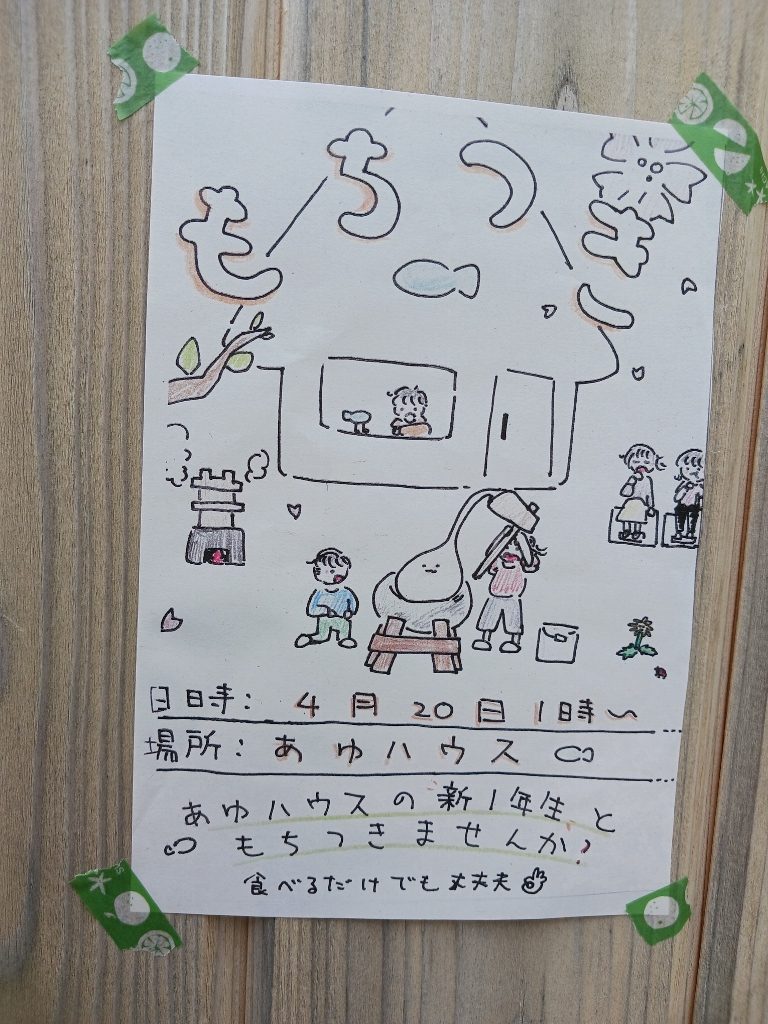 もちつき
日時: 4月20日 1時〜
場所: あゆハウス
あゆハウスの新1年生と
もちつきませんか?
食べるだけでも丈夫夫